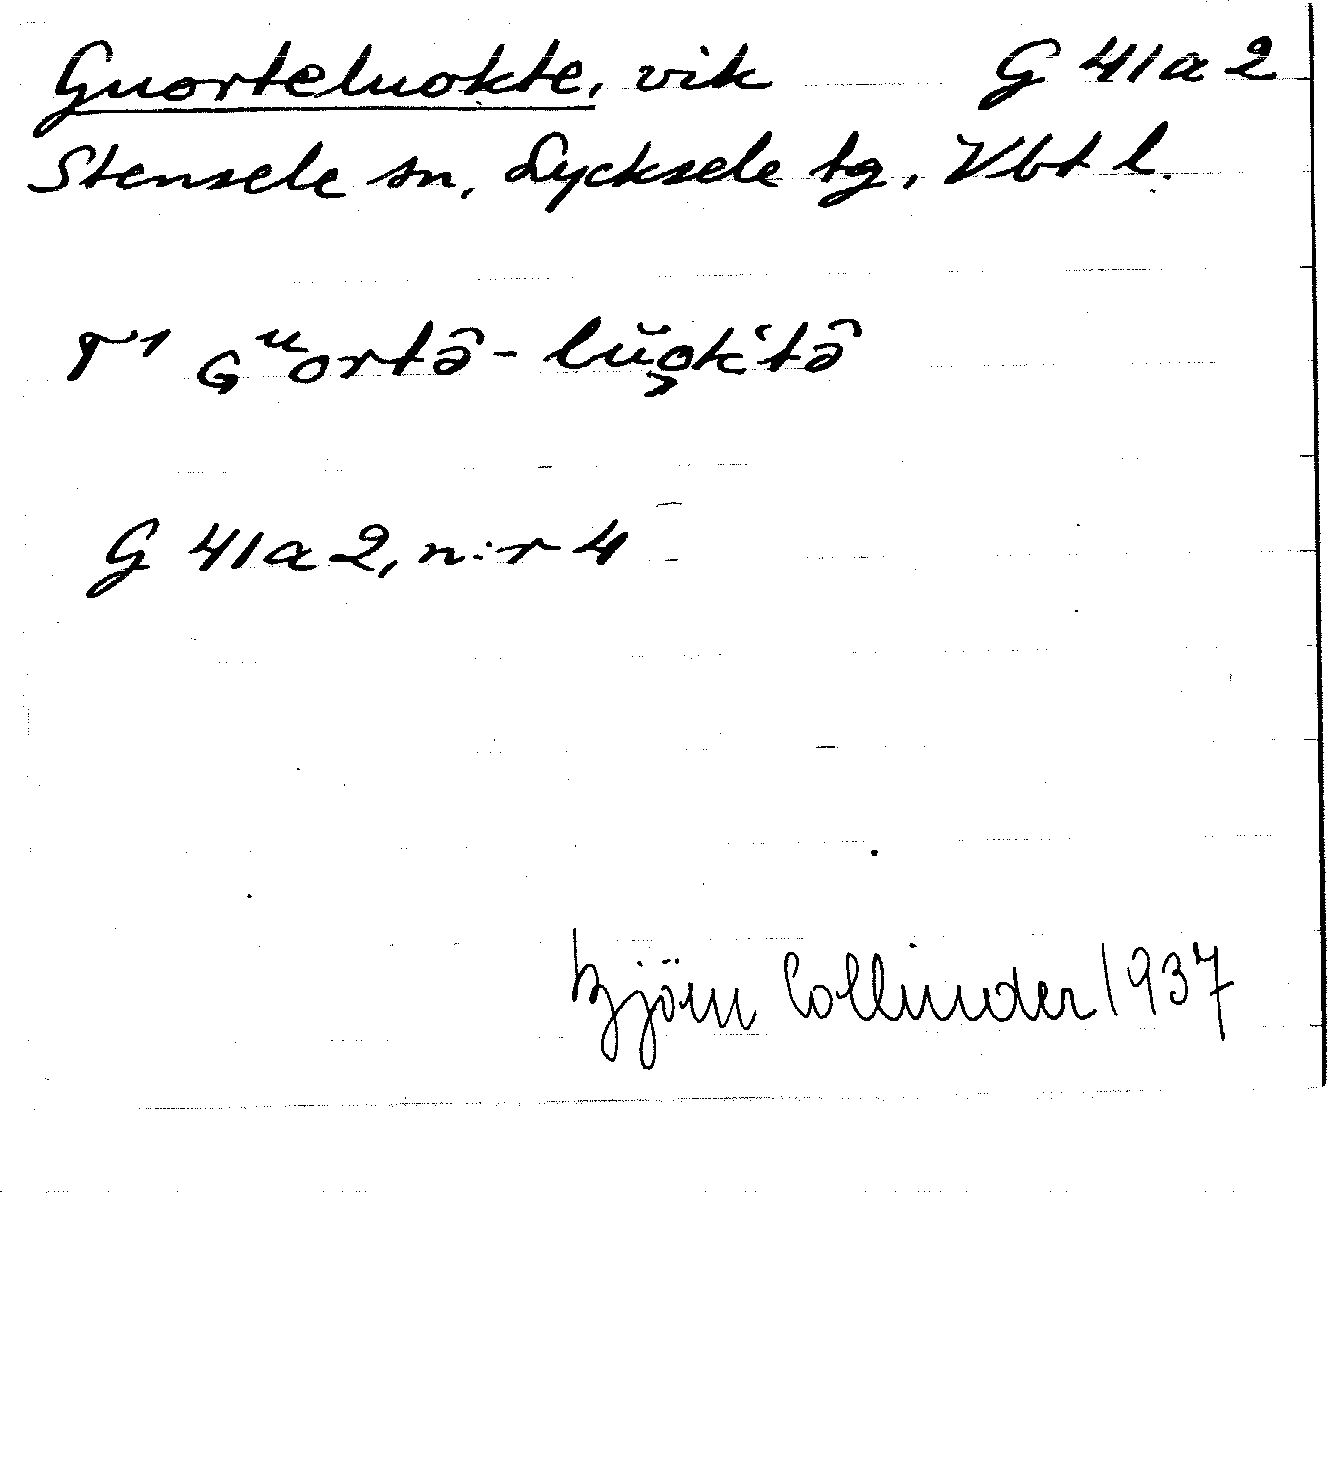 Guorteluokte, vik G 41 a 2
Stensele sn, Lycksele tg, Vbt l.
T' Gᵘortə̂-lŭo̜kʻtə̂
G 41 a 2, n:r 4
Björn Collinder 1937